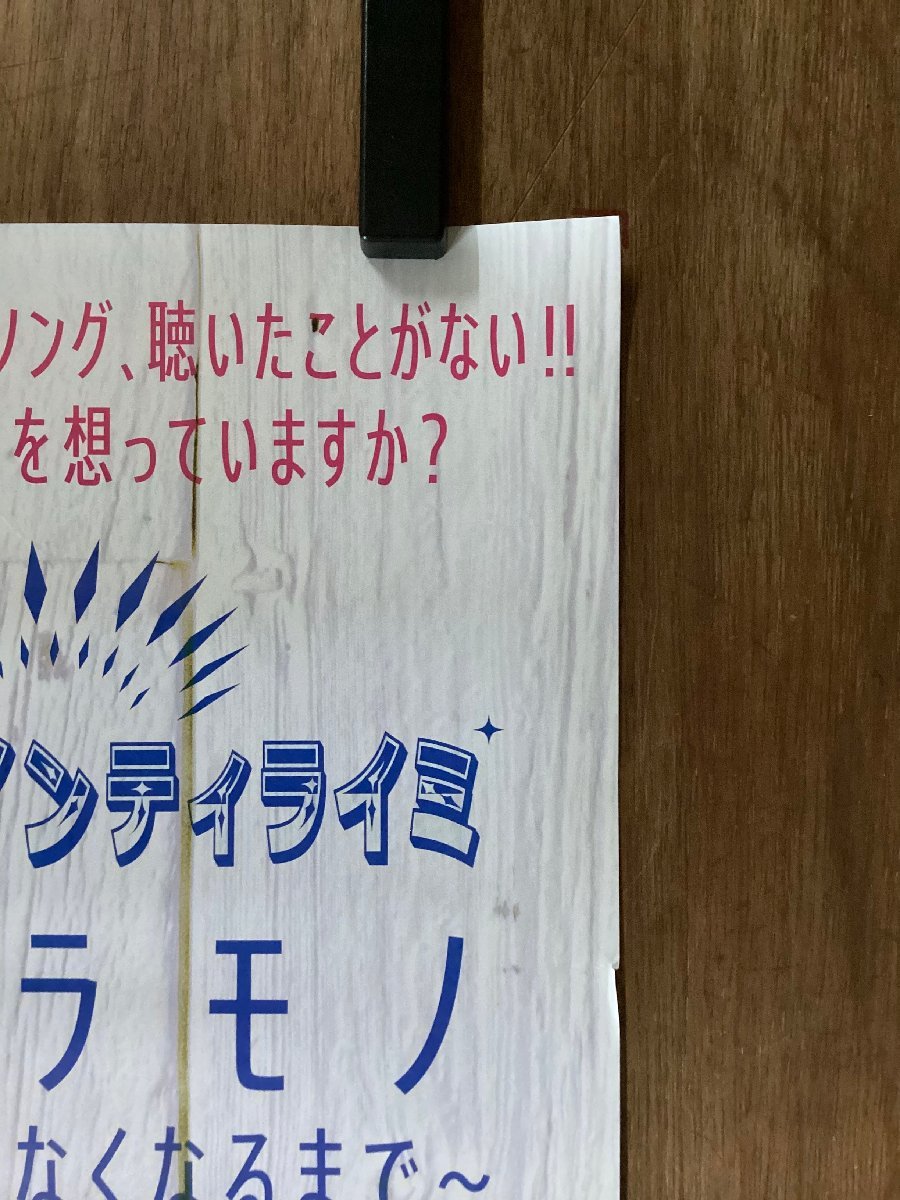 ソング、聴いたことがない!!
を想っていますか?
ンティライミ
ラモノ
なくなるまで~